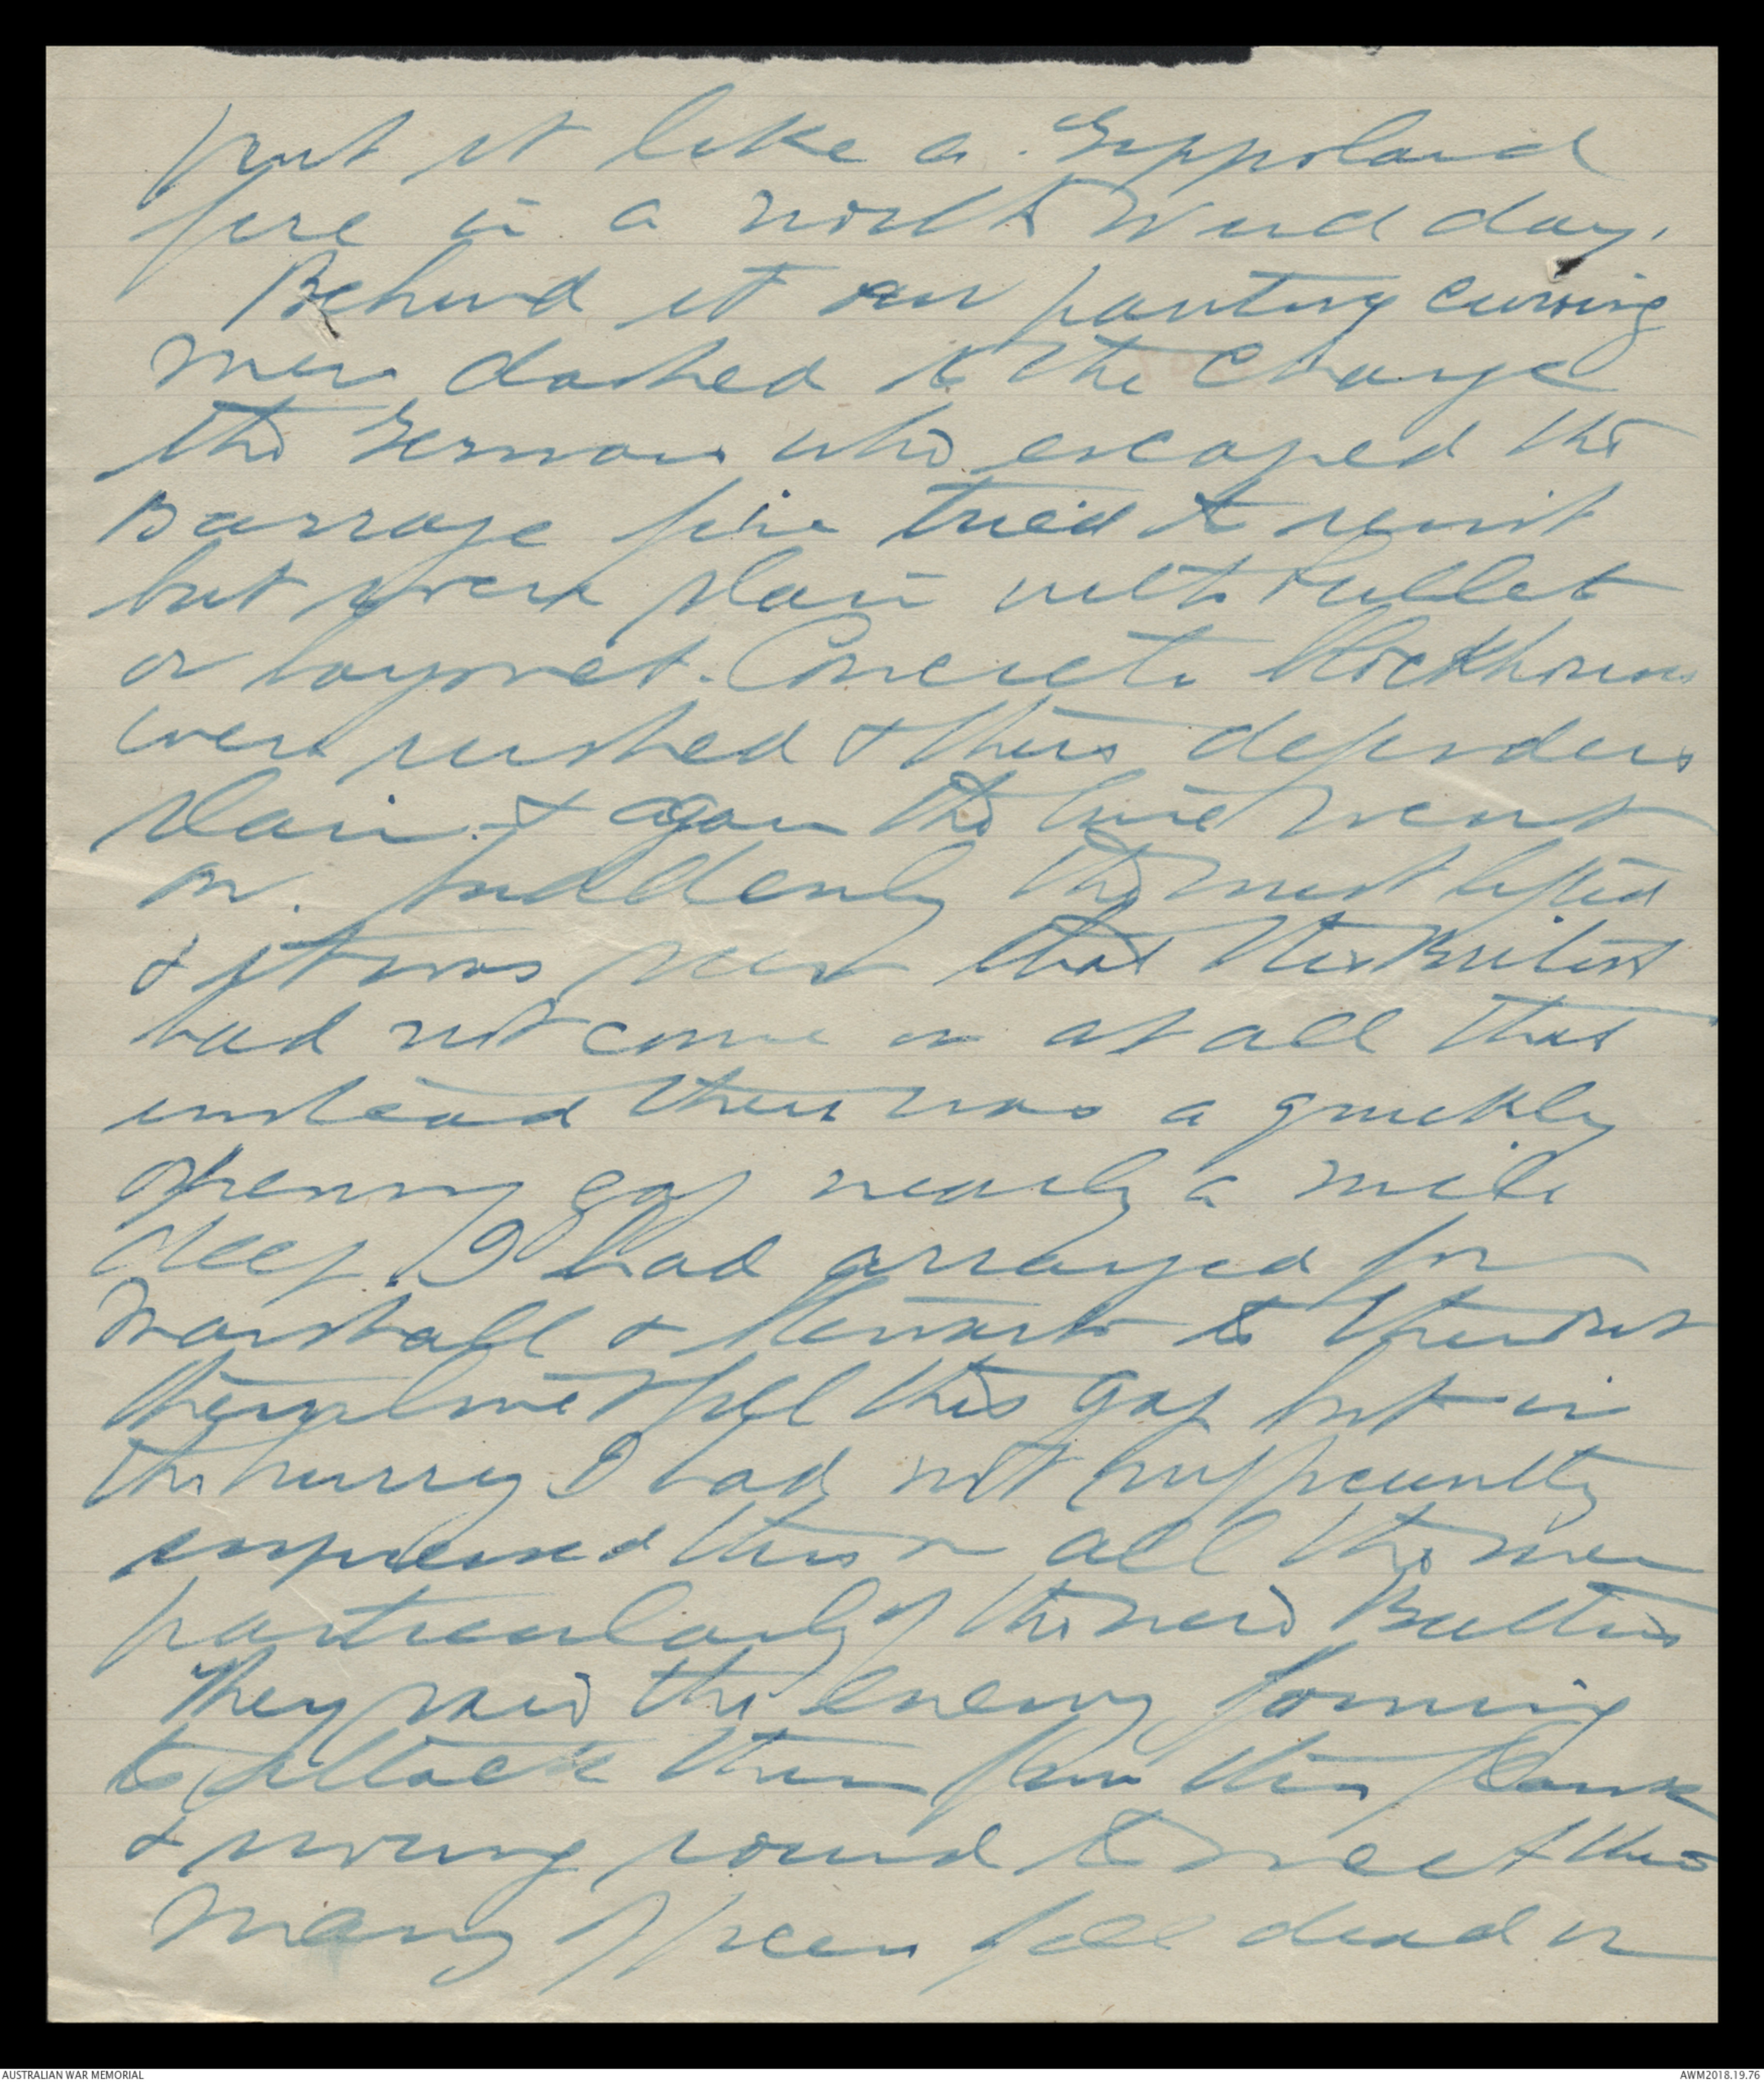 put it like a Gippsland
fire in a north wind day.
Behind it our panting cursing
men dashed to the charge
the Germans who escaped the
Barrage fire tried to resist
but were slain with bullet
or bayonet. Concrete blockhouses
were rushed & their defenders
slain & again the line went
on. Suddenly the mist lifted
& it was seen that the British
had not come on at all that
instead there was a quickly
opening gap nearly a mile
deep. I had arranged for
Marshall & Stewart to
& fill this gap but in
the hurry I had not sufficiently
impressed this on all the men
particularly of the new Battns
They saw the enemy forming
to attack them from this flank
& swung round to meet this
Many officers fell dead or
AUSTRALIAN WAR MEMORIAL
AWM2018.19.76